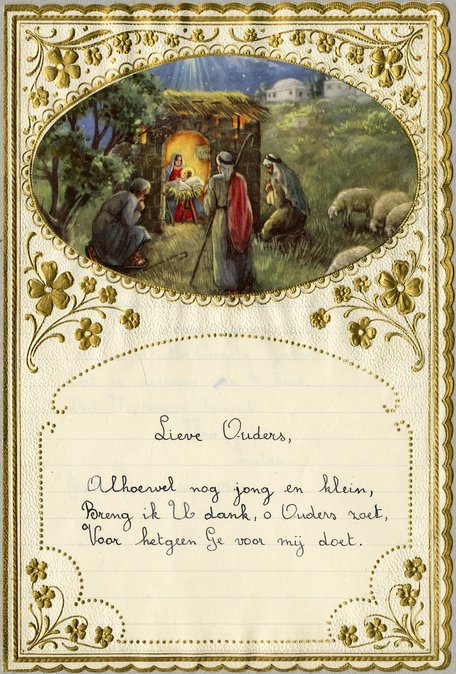 Lieve Ouders,
Alhoewel nog jong en klein,
Breng ik U dank, o Ouders zoet,
Voor hetgeen Ge voor mij doet.